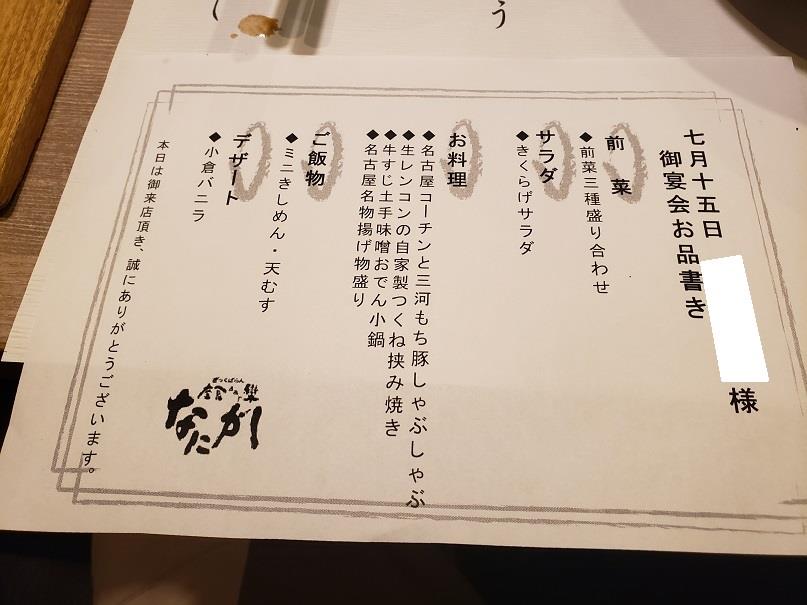 七月十五日
様
御宴会お品書き
前菜
◆前菜三種盛り合わせ
サラダ
◆きくらげサラダ
お料理
◆名古屋コーチンと三河もち豚しゃぶしゃぶ
◆生レンコンの自家製つくね挟み焼き
◆牛すじ土手味噌おでん小鍋
◆名古屋名物揚げ物盛り
ご飯物
◆ミニきしめん・天むす
デザート
◆小倉バニラ
本日は御来店頂き、誠にありがとうございます。
なにがし
う
し